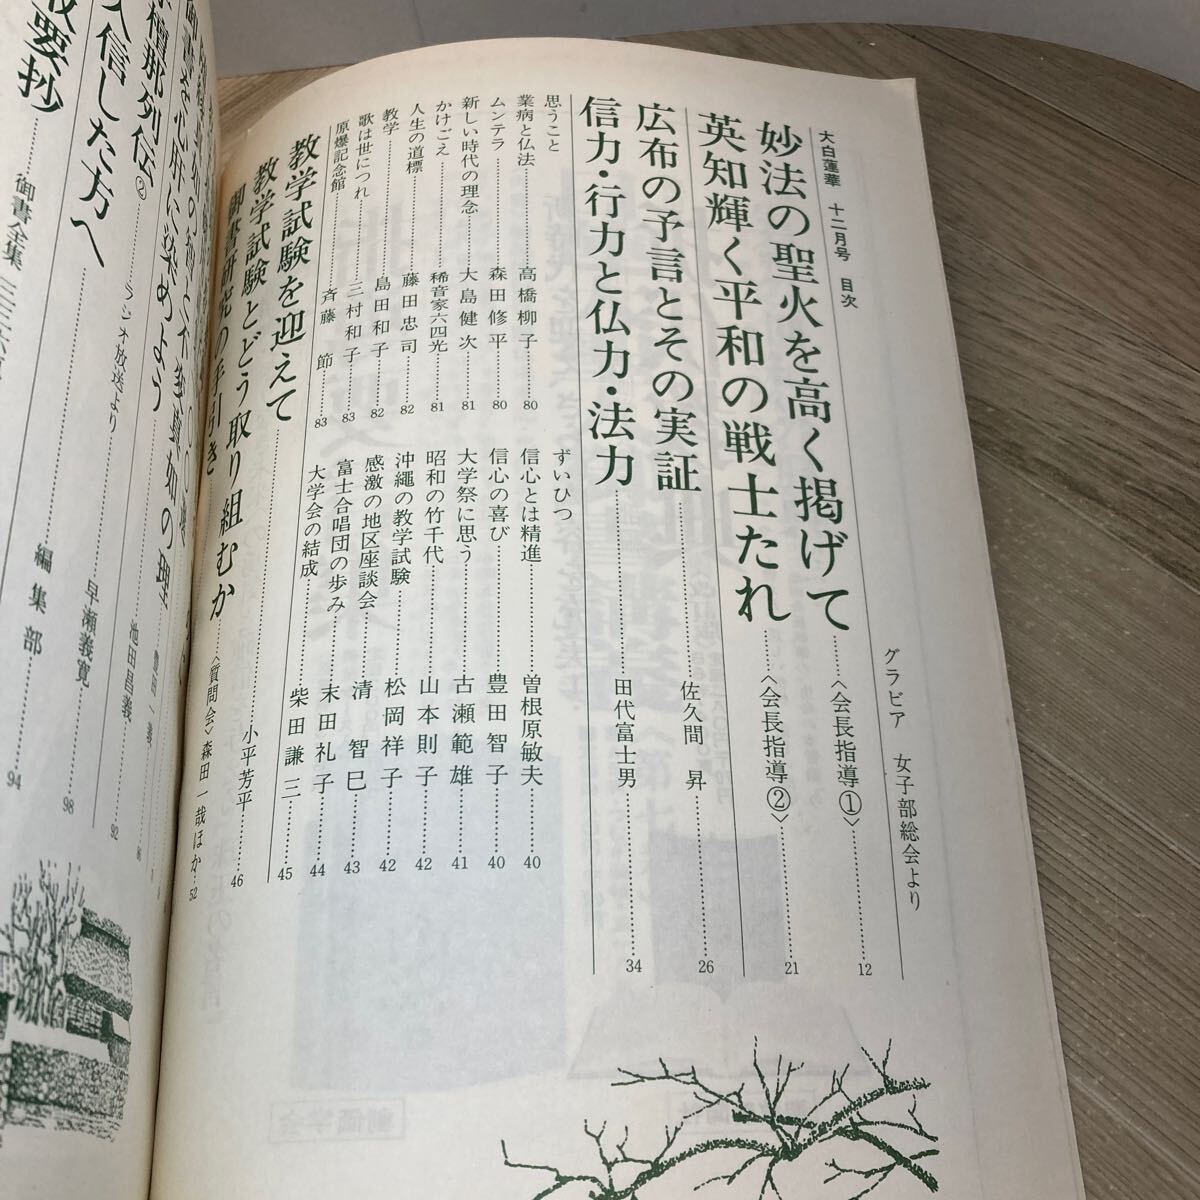 大白蓮華 十二月号 目次
グラビア 女子部総会より
妙法の聖火を高く掲げて……〈会長指導①〉……12
英知輝く平和の戦士たれ……〈会長指導②〉……21
広布の予言とその実証……佐久間 昇……26
信力・行力と仏力・法力……田代富士男……34
思うこと
業病と仏法……高橋柳子……80
ムンテラ……森田修平……80
新しい時代の理念……大島健次……81
かけごえ……稀音家六四光……81
人生の道標……藤田忠司……82
教学……島田和子……82
歌は世につれ……三村和子……83
原爆記念館……斉藤 節……83
ずいひつ
信心とは精進……曽根原敏夫……40
信心の喜び……豊田智子……40
大学祭に思う……古瀬範雄……41
昭和の竹千代……山本則子……42
沖縄の教学試験……松岡祥子……42
感激の地区座談会……清 智巳……43
富士合唱団の歩み……末田礼子……44
大学会の結成……柴田謙三……45
教学試験を迎えて……小平芳平……46
教学試験とどう取り組むか……〈質問会〉森田一哉ほか…52
御書研究の手引き
の理
御書を心肝に染めよう
檀那列伝②……ラジオ放送より……池田昌義……92
入信した方へ……早瀬義寛……98
要抄……御書全集
編集部……94
創価学会